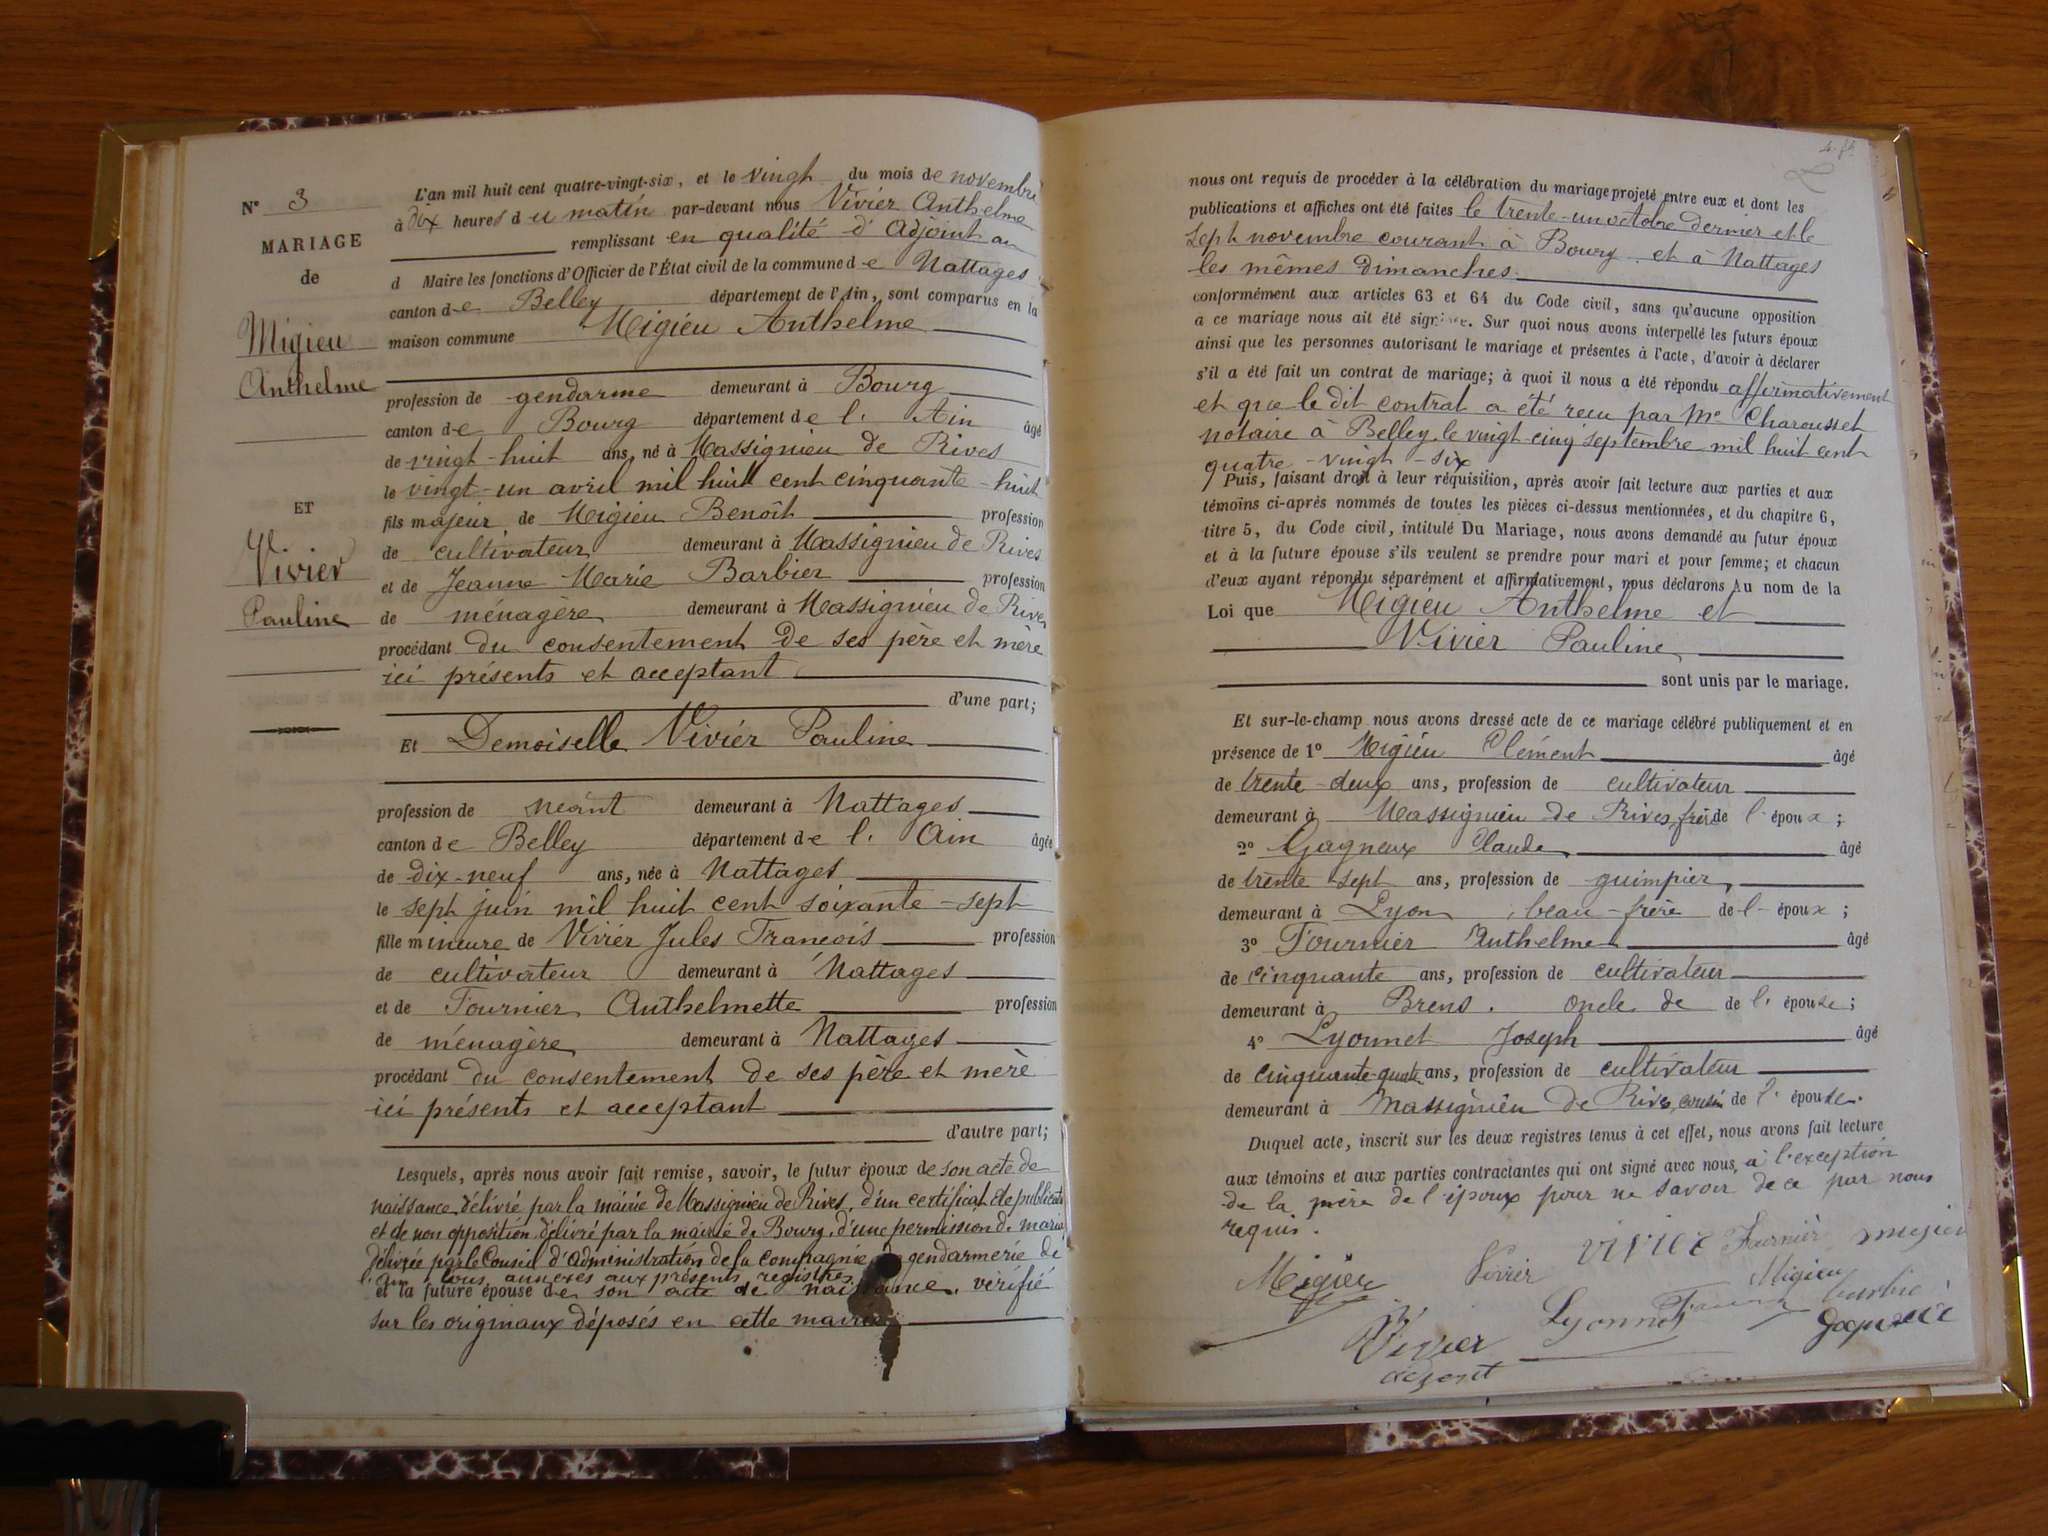 N° 3
MARIAGE
de
Migieu
Anthelme
ET
Vivier
Pauline
L'an mil huit cent quatre-vingt-six, et le vingt du mois de novembre
à dix heures du matin par-devant nous Vivier Anthelme
remplissant en qualité d'Adjoint au
d Maire les fonctions d'Officier de l'État civil de la commune de Nattages
canton de Belley département de l'Ain, sont comparus en la
maison commune Migieu Anthelme
profession de gendarme demeurant à Bourg
canton de Bourg département de l'Ain âgé
de vingt-huit ans, né à Massignieu de Rives
le vingt-un avril mil huit cent cinquante-huit
fils majeur de Migieu Benoît profession
de cultivateur demeurant à Massignieu de Rives
et de Jeanne Marie Barbier profession
de ménagère demeurant à Massignieu de Rives
procédant du consentement de ses père et mère
ici présents et acceptant
d'une part;
Et Demoiselle Vivier Pauline
profession de néant demeurant à Nattages
canton de Belley département de l'Ain âgée
de dix-neuf ans, née à Nattages
le sept juin mil huit cent soixante-sept
fille mineure de Vivier Jules François profession
de cultivateur demeurant à Nattages
et de Fournier Anthelmette profession
de ménagère demeurant à Nattages
procédant du consentement de ses père et mère
ici présents et acceptant
d'autre part;
Lesquels, après nous avoir fait remise, savoir, le futur époux de son acte de
naissance délivré par la mairie de Massignieu de Rives, d'un certificat de publicat
et de non opposition délivré par la mairie de Bourg, d'une permission de maria
délivrée par le Conseil d'administration de la compagnie de gendarmerie de
l'ain tous annexés aux présents registres
et la future épouse de son acte de naissance, vérifié
sur les originaux déposés en cette mairie
nous ont requis de procéder à la célébration du mariage projeté entre eux et dont les
publications et affiches ont été faites le trente-un octobre dernier et le
sept novembre courant à Bourg et à Nattages
les mêmes dimanches
conformément aux articles 63 et 64 du Code civil, sans qu'aucune opposition
a ce mariage nous ait été signifiée. Sur quoi nous avons interpellé les futurs époux
ainsi que les personnes autorisant le mariage et présentes à l'acte, d'avoir à déclarer
s'il a été fait un contrat de mariage; à quoi il nous a été répondu affirmativement
et que le dit contrat a été reçu par Me Charousset
notaire à Belley le vingt-cinq septembre mil huit cent
quatre-vingt-six
Puis, faisant droit à leur réquisition, après avoir fait lecture aux parties et aux
témoins ci-après nommés de toutes les pièces ci-dessus mentionnées, et du chapitre 6,
titre 5, du Code civil, intitulé Du Mariage, nous avons demandé au futur époux
et à la future épouse s'ils veulent se prendre pour mari et pour femme; et chacun
d'eux ayant répondu séparément et affirmativement, nous déclarons Au nom de la
Loi que Migieu Anthelme et
Vivier Pauline
sont unis par le mariage.
Et sur-le-champ nous avons dressé acte de ce mariage célébré publiquement et en
présence de 1° Migieu Clément âgé
de trente-deux ans, profession de cultivateur
demeurant à Massignieu de Rives frère de l'époux;
2° Gagneux Claude âgé
de trente-sept ans, profession de guimpier,
demeurant à Lyon, beau-frère de l'époux;
3° Fournier Anthelme âgé
de cinquante ans, profession de cultivateur
demeurant à Brens. oncle de de l'épouse;
4° Lyonnet Joseph âgé
de cinquante-quatre ans, profession de cultivateur
demeurant à Massignieu de Rives, cousin de l'épouse.
Duquel acte, inscrit sur les deux registres tenus à cet effet, nous avons fait lecture
aux témoins et aux parties contractantes qui ont signé avec nous, à l'exception
de la mère de l'époux pour ne savoir de ce par nous
requis.
Migieu Vivier Vivier Fournier migieu
Migieu
Lyonnet
Vivier